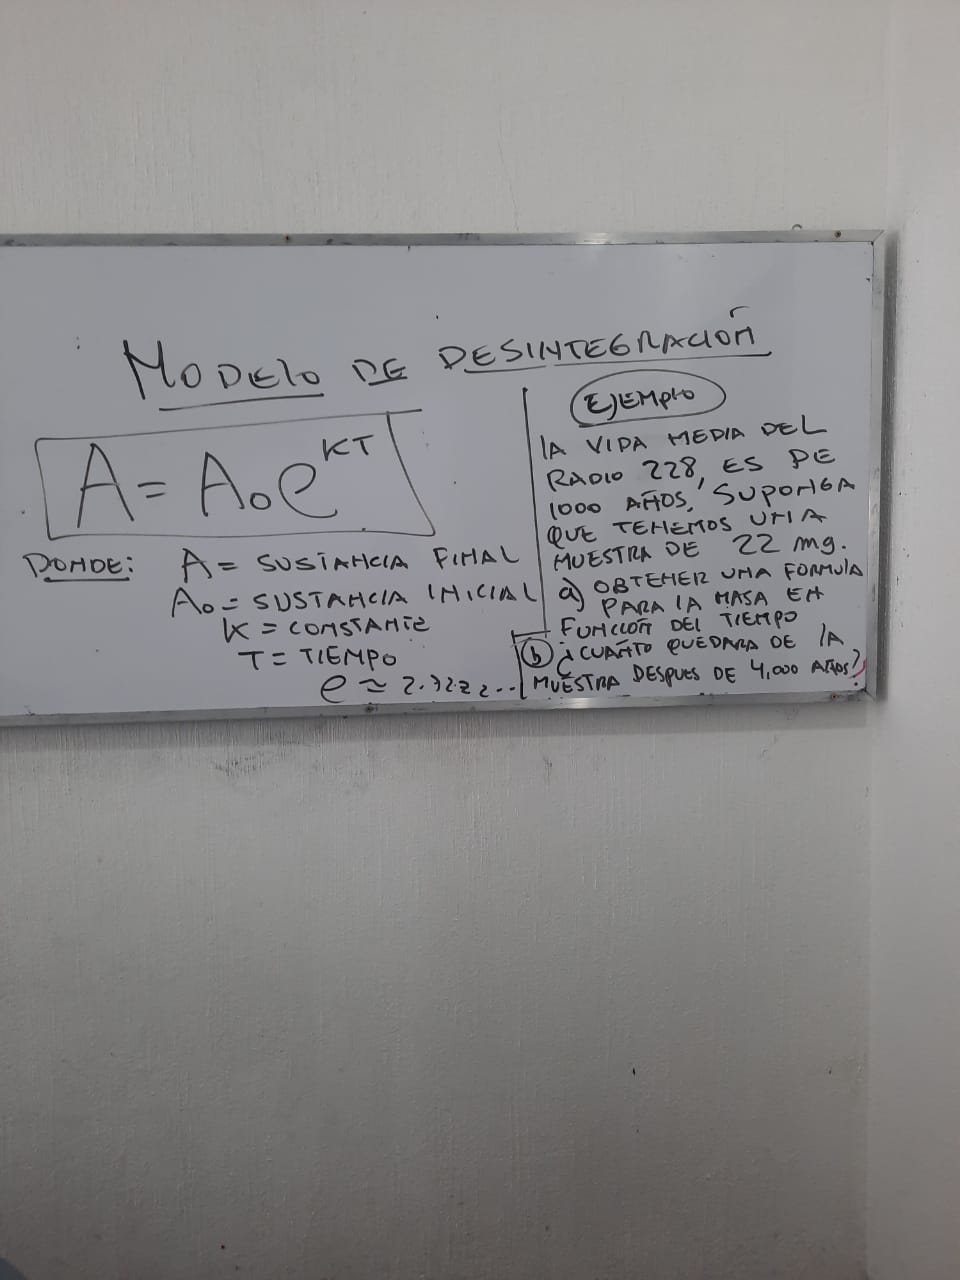 MODELO DE DESINTEGRACIÓN
A = A₀e^KT
DONDE: A = SUSTANCIA FINAL
A₀ = SUSTANCIA INICIAL
K = CONSTANTE
T = TIEMPO
e ≈
EJEMPLO
LA VIDA MEDIA DEL
RADIO 228, ES DE
1000 AÑOS, SUPONGA
QUE TENEMOS UNA
MUESTRA DE 22 mg.
a) OBTENER UNA FORMULA
PARA LA MASA EN
FUNCIÓN DEL TIEMPO
b) ¿CUÁNTO QUEDARA DE LA
MUESTRA DESPUES DE 4,000 AÑOS?